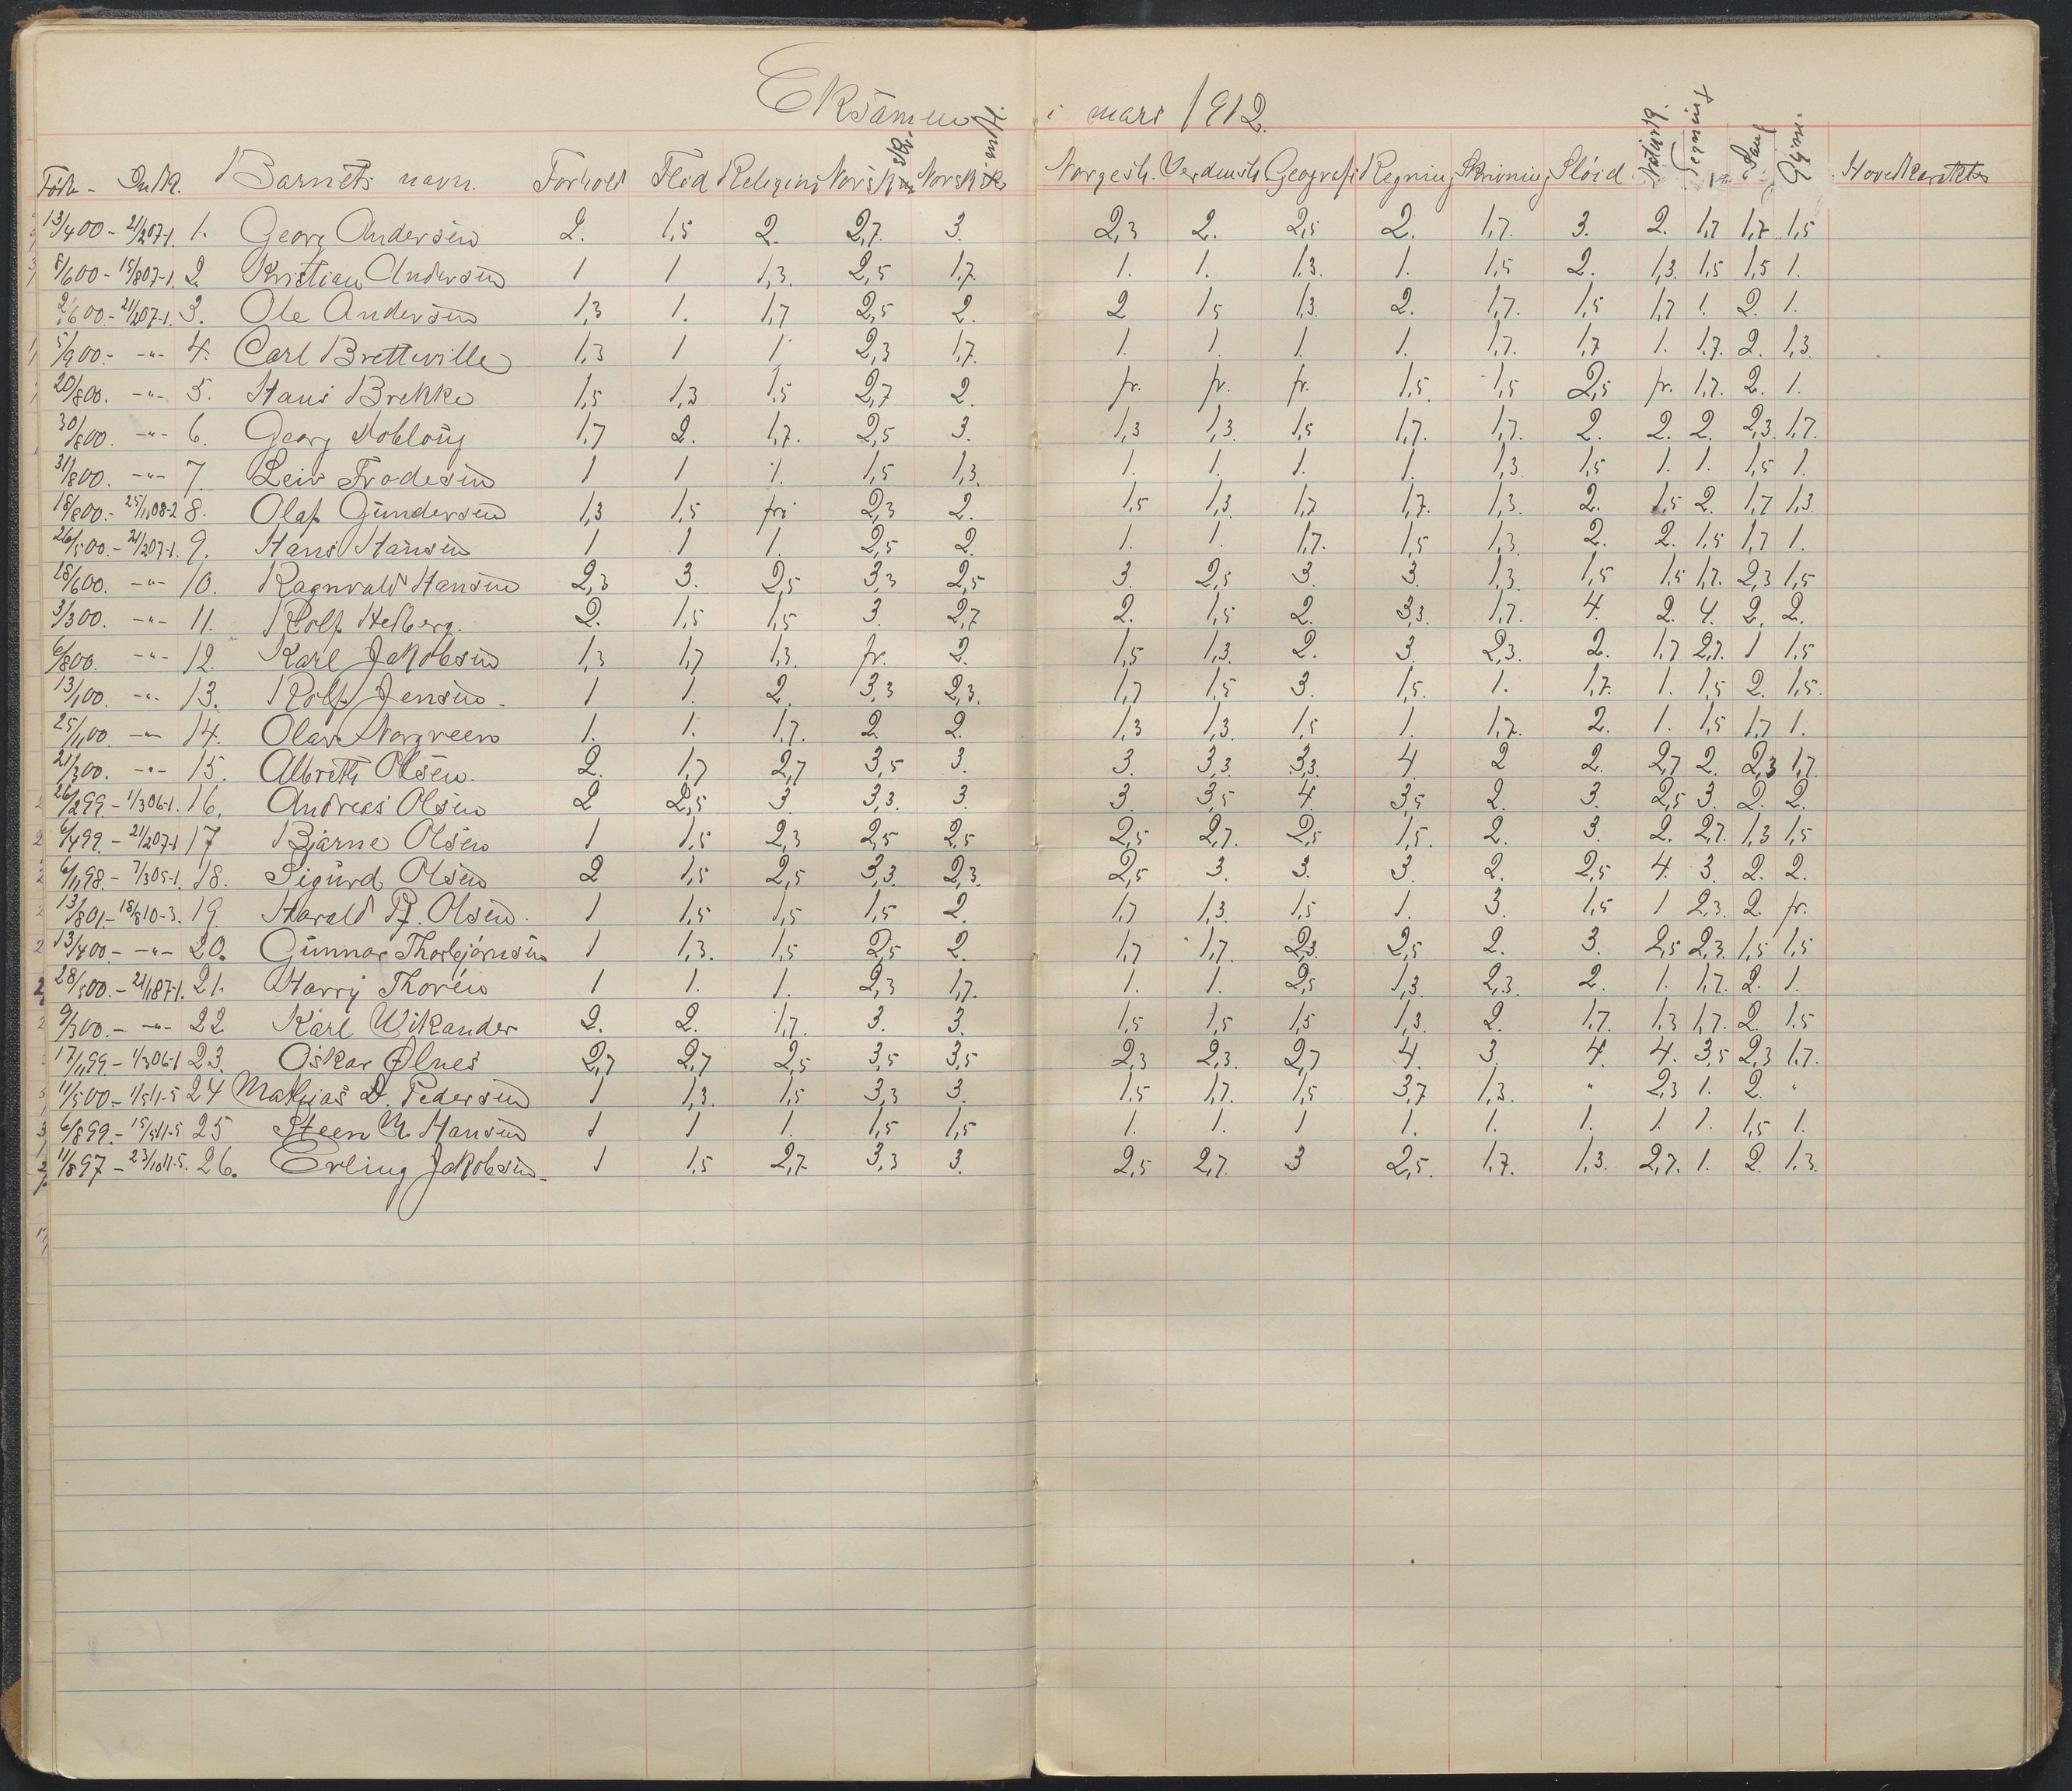 Eksamen i mars 1912.
Født - Indk. Barnets navn. Forhold Flid Religion Norsk sk. Norsk mtl. Norgesh. Verdensh. Geografi Regning Skrivning Sløid. Naturk. Tegning Sang Gym. Hovedkarakter
13/4 00 - 21/2 07-1. 1. Georg Andersen 2. 1,5 2. 2,7. 3. 2,3 2. 2,5 2. 1,7. 3. 2. 1,7 1,7. 1,5
8/6 00 - 15/8 07-1. 2. Kristian Andersen 1 1 1,3. 2,5 1,7. 1. 1. 1,3. 1. 1,5 2. 1,3. 1,5 1,5 1.
2/6 00 - 21/2 07-1. 3. Ole Andersen 1,3 1. 1,7 2,5 2. 2 1,5 1,3. 2. 1,7. 1,5 1,7 1. 2. 1.
5/9 00 - -"- 4. Carl Bretteville 1,3 1 1 2,3 1,7. 1. 1. 1. 1. 1,7. 1,7 1. 1,7. 2. 1,3.
20/8 00. -"- 5. Hans Brekke 1,5 1,3 1,5 2,7 2. fr. fr. fr. 1,5. 1,5 2,5 fr. 1,7. 2. 1.
30/8 00. -"- 6. Georg 1,7 2. 1,7. 2,5 3. 1,3 1,3. 1,5 1,7. 1,7. 2. 2. 2. 2,3. 1,7.
31/8 00. -"- 7. Leiv Frodesen 1 1 1. 1,5 1,3. 1. 1. 1. 1. 1,3 1,5 1. 1. 1,5 1.
18/8 00. - 25/1 08-2 8. Olaf Gundersen 1,3 1,5 fri 2,3 2. 1,5 1,3. 1,7 1,7. 1,3. 2. 1,5 2. 1,7 1,3
26/5 00. - 21/2 07-1. 9. Hans Hansen 1 1 1. 2,5 2. 1. 1. 1,7. 1,5 1,3. 2. 2. 1,5 1,7 1.
18/6 00. -"- 10. Ragnvald Hansen 2,3 3. 2,5 3,3 2,5 3. 2,5 3. 3. 1,3 1,5 1,5 1,7. 2,3 1,5
3/3 00. -"- 11. Rolf Helberg. 2. 1,5 1,5 3. 2,7 2. 1,5 2. 3,3. 1,7. 4. 2. 4. 2. 2.
6/8 00. -"- 12. Karl Jakobsen 1,3 1,7 1,3. fr. 2. 1,5 1,3. 2. 3. 2,3. 2. 1,7 2,7. 1 1,5
13/1 00. -"- 13. Rolf Jensen. 1 1. 2. 3,3 2,3. 1,7 1,5 3. 1,5. 1. 1,7. 1. 1,5 2. 1,5.
25/11 00. -"- 14. Olav Norgreen 1. 1. 1,7. 2 2. 1,3 1,3. 1,5 1. 1,7. 2. 1. 1,5 1,7 1.
21/3 00. -"- 15. Albreth Olsen. 2. 1,7 2,7 3,5 3. 3. 3,3 3,3. 4 2 2. 2,7 2. 2,3 1,7.
26/2 99. - 1/3 06-1. 16. Andreas Olsen 2 2,5 3 3,3. 3. 3. 3,5 4. 3,5 2. 3. 2,5 3. 2. 2.
6/4 99. - 21/2 07-1 17 Bjarne Olsen 1 1,5 2,3 2,5 2,5 2,5 2,7. 2,5 1,5. 2. 3. 2. 2,7. 1,3 1,5
6/11 98. - 7/3 05-1. 18. Sigurd Olsen 2 1,5 2,5 3,3. 2,3. 2,5 3. 3. 3. 2. 2,5 4. 3. 2. 2.
13/8 01. - 18/8 10-3. 19. Harald Olsen. 1 1,5 1,5 1,5 2. 1,7 1,3. 1,5 1. 3. 1,5 1 2,3. 2. fr.
13/4 00. - -"- 20. Gunnar Thorbjørnsen 1 1,3. 1,5 2,5 2. 1,7 1,7. 2,3 2,5 2. 3. 2,5 2,3. 1,5 1,5
28/5 00. 21. Harry Thorén 1 1. 1. 2,3 1,7. 1. 1. 2,5 1,3 2,3. 2. 1. 1,7. 2. 1.
9/3 00. - -"- 22 Karl Wikander 2. 2. 1,7. 3. 3. 1,5 1,5 1,5 1,3. 2. 1,7. 1,3 1,7. 2. 1,5
17/11 99 - 1/3 06-1 23. Oskar Ølnes 2,7 2,7 2,5 3,5 3,5 2,3 2,3. 2,7 4. 3. 4. 4. 3,5 2,3 1,7.
11/5 00 - 1/5 11-5 24 Mathias D. Pedersen 1 1,3. 1,5 3,3 3. 1,5 1,7. 1,5 3,7 1,3. " 2,3 1. 2. "
6/8 99. - 15/5 11-5 25 Steen M. Hansen 1 1 1. 1,5 1,5 1. 1. 1 1. 1. 1. 1. 1. 1,5 1.
11/8 97 - 23/10 11-5. 26. Erling Jakobsen. 1 1,5 2,7. 3,3 3. 2,5 2,7. 3 2,5. 1,7. 1,3. 2,7. 1. 2. 1,3.